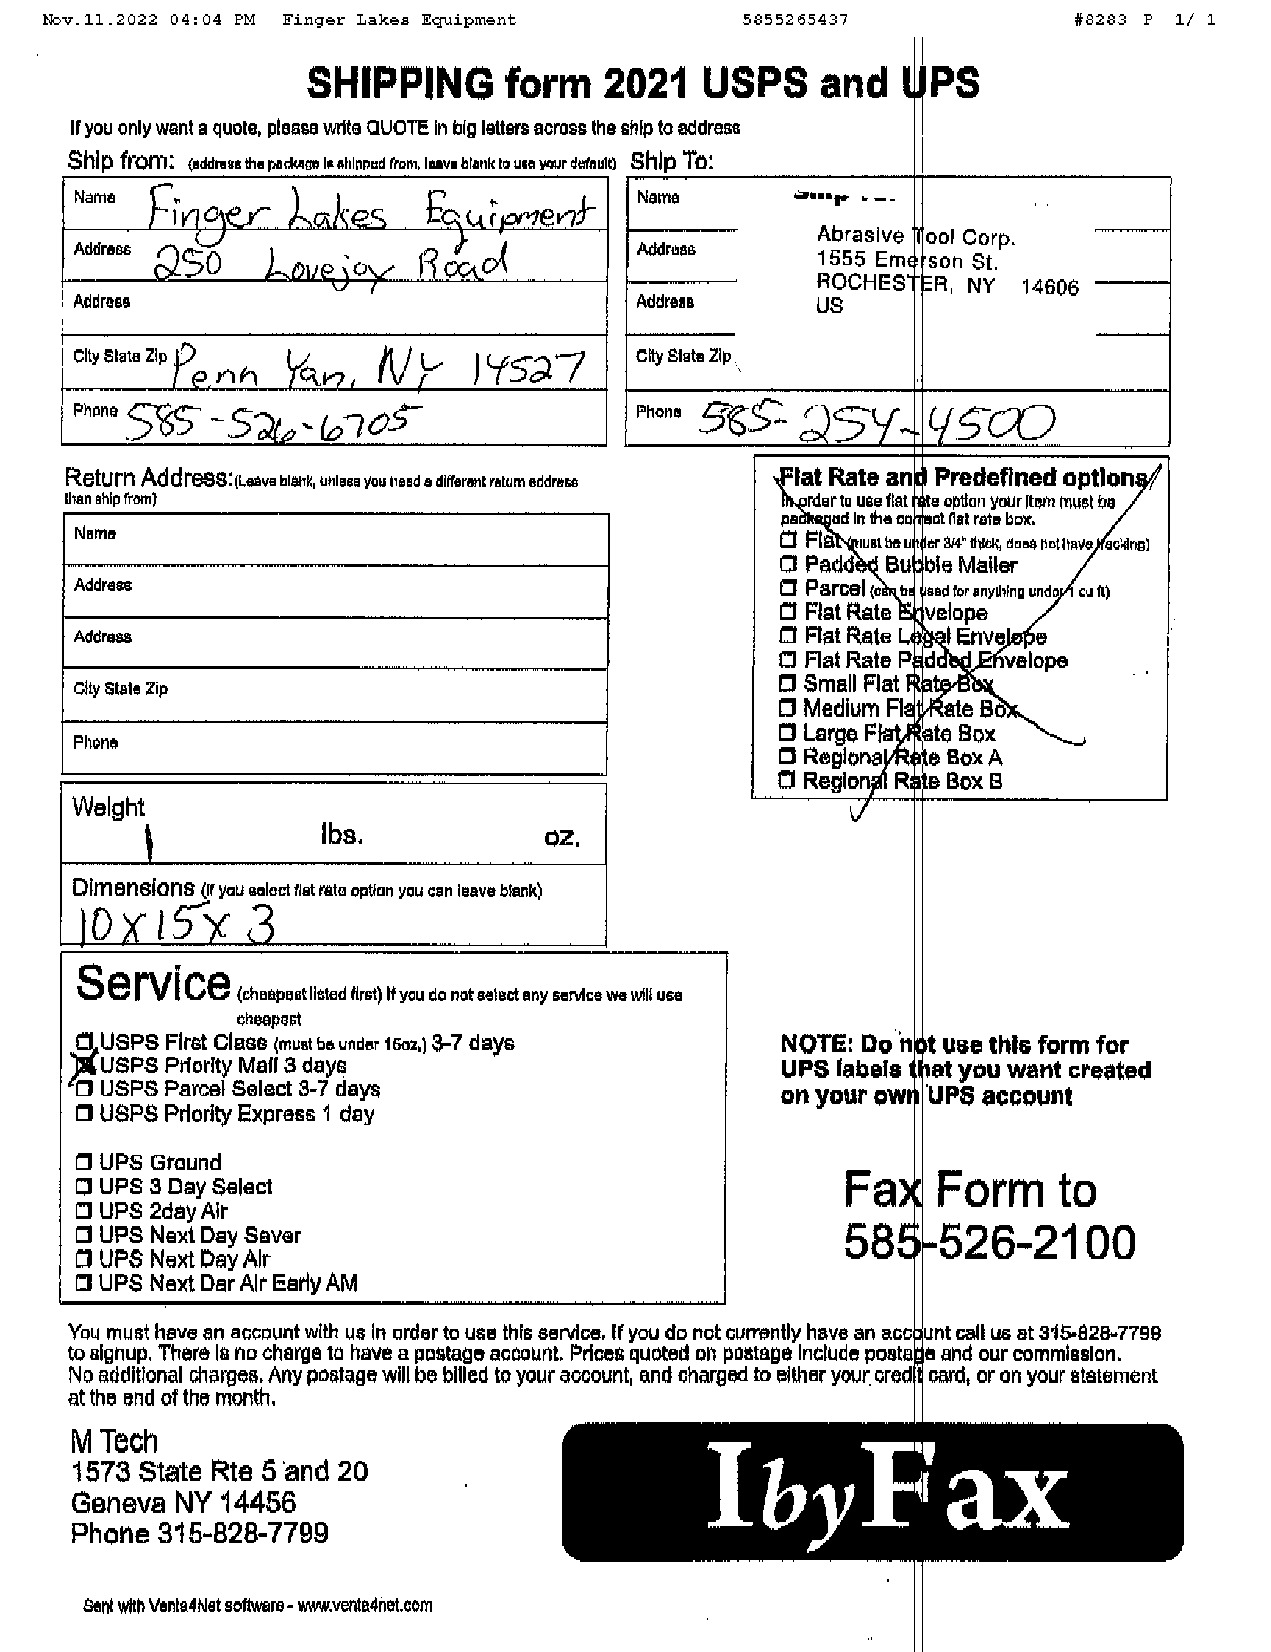 Nov.11.2022 04:04 PM Finger Lakes Equipment 5855265437 #8283 P 1/ 1
SHIPPING form 2021 USPS and UPS
If you only want a quote, please write QUOTE in big letters across the ship to address
Ship from: (address the package is shipped from, leave blank to use your default) Ship To:
Name Finger Lakes Equipment
Address 250 Lovejoy Road
Address
City State Zip Penn Yan, NY 14527
Phone 585-526-6705
Name
Abrasive Tool Corp.
Address 1555 Emerson St.
ROCHESTER, NY 14606
Address US
City State Zip
Phone 585-254-4500
Return Address: (Leave blank, unless you need a different return address
than ship from)
Name
Address
Address
City State Zip
Phone
Flat Rate and Predefined options
In order to use flat rate option your item must be
packaged in the correct flat rate box.
Flat (must be under 3/4" thick, does not have packing)
Padded Bubble Mailer
Parcel (can be used for anything under 1 cu ft)
Flat Rate Envelope
Flat Rate Legal Envelope
Flat Rate Padded Envelope
Small Flat Rate Box
Medium Flat Rate Box
Large Flat Rate Box
Regional Rate Box A
Regional Rate Box B
Weight
1 lbs. oz.
Dimensions (If you select flat rate option you can leave blank)
10 x 15 x 3
Service (cheapest listed first) If you do not select any service we will use
cheapest
USPS First Class (must be under 16oz.) 3-7 days
USPS Priority Mail 3 days
USPS Parcel Select 3-7 days
USPS Priority Express 1 day
UPS Ground
UPS 3 Day Select
UPS 2day Air
UPS Next Day Saver
UPS Next Day Air
UPS Next Dar Air Early AM
NOTE: Do not use this form for
UPS labels that you want created
on your own UPS account
Fax Form to
585-526-2100
You must have an account with us in order to use this service. If you do not currently have an account call us at 315-828-7799
to signup. There is no charge to have a postage account. Prices quoted on postage include postage and our commission.
No additional charges. Any postage will be billed to your account, and charged to either your credit card, or on your statement
at the end of the month.
M Tech
1573 State Rte 5 and 20
Geneva NY 14456
Phone 315-828-7799
IbyFax
Sent with Venta4Net software - www.venta4net.com